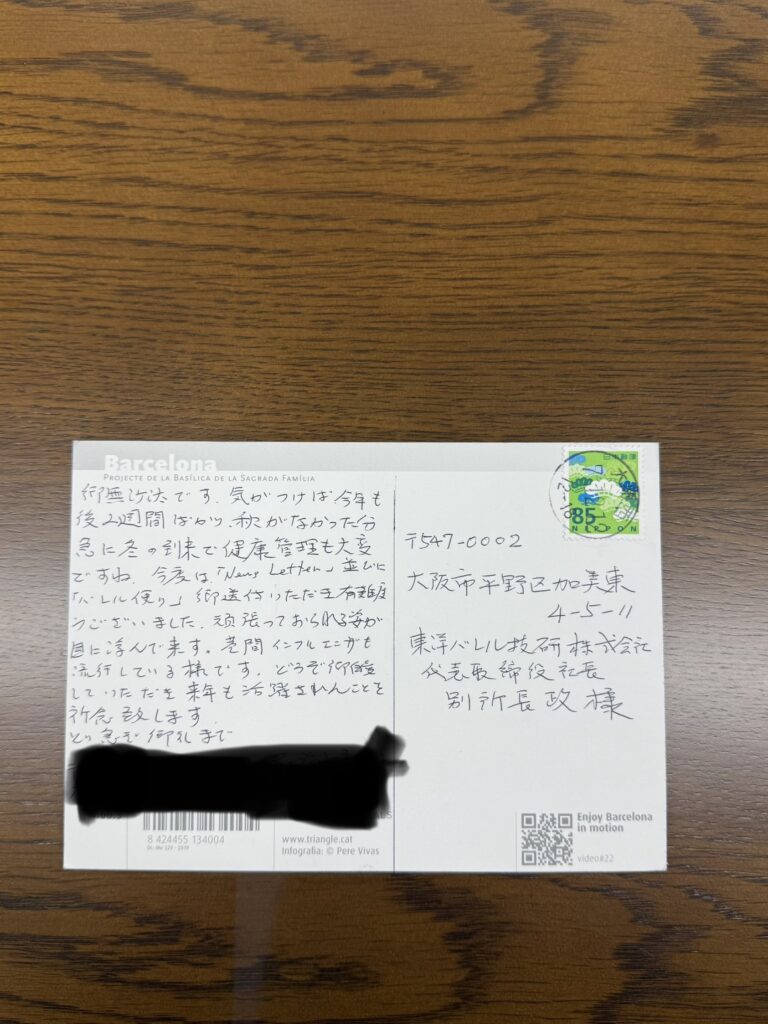 Barcelona
PROJECTE DE LA BASÍLICA DE LA SAGRADA FAMÍLIA
御無沙汰です。気がつけば今年も
後2週間ばかり、秋がなかった分
急に冬の到来で健康管理も大変
ですね。今度は、「News Letter」並びに
「バレル便り」御送付いただき有難度
うございました。頑張っておられる姿が
目に浮んで来ます。巷間インフルエンザも
流行している様です。どうぞ御自愛
していただき来年も活躍されんことを
祈念致します。
とり急ぎ御礼まで
8 424455 134004
www.triangle.cat
Infografia: © Pere Vivas
日本郵便
85
NIPPON
〒547-0002
大阪市平野区加美東
4-5-11
東洋バレル技研株式会社
代表取締役社長
別所長政様
Enjoy Barcelona
in motion
video#22